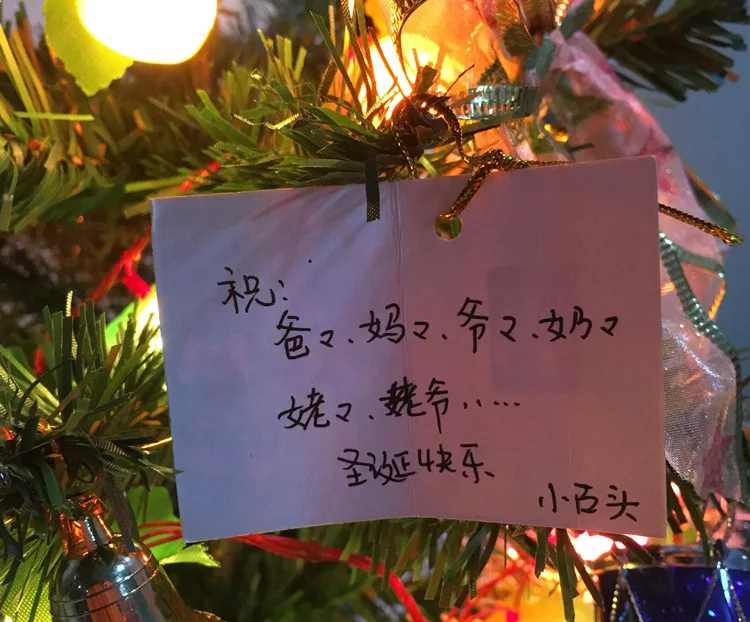 祝:
爸々、妈々、爷々、奶々
姥々、姥爷……
圣诞快乐
小石头